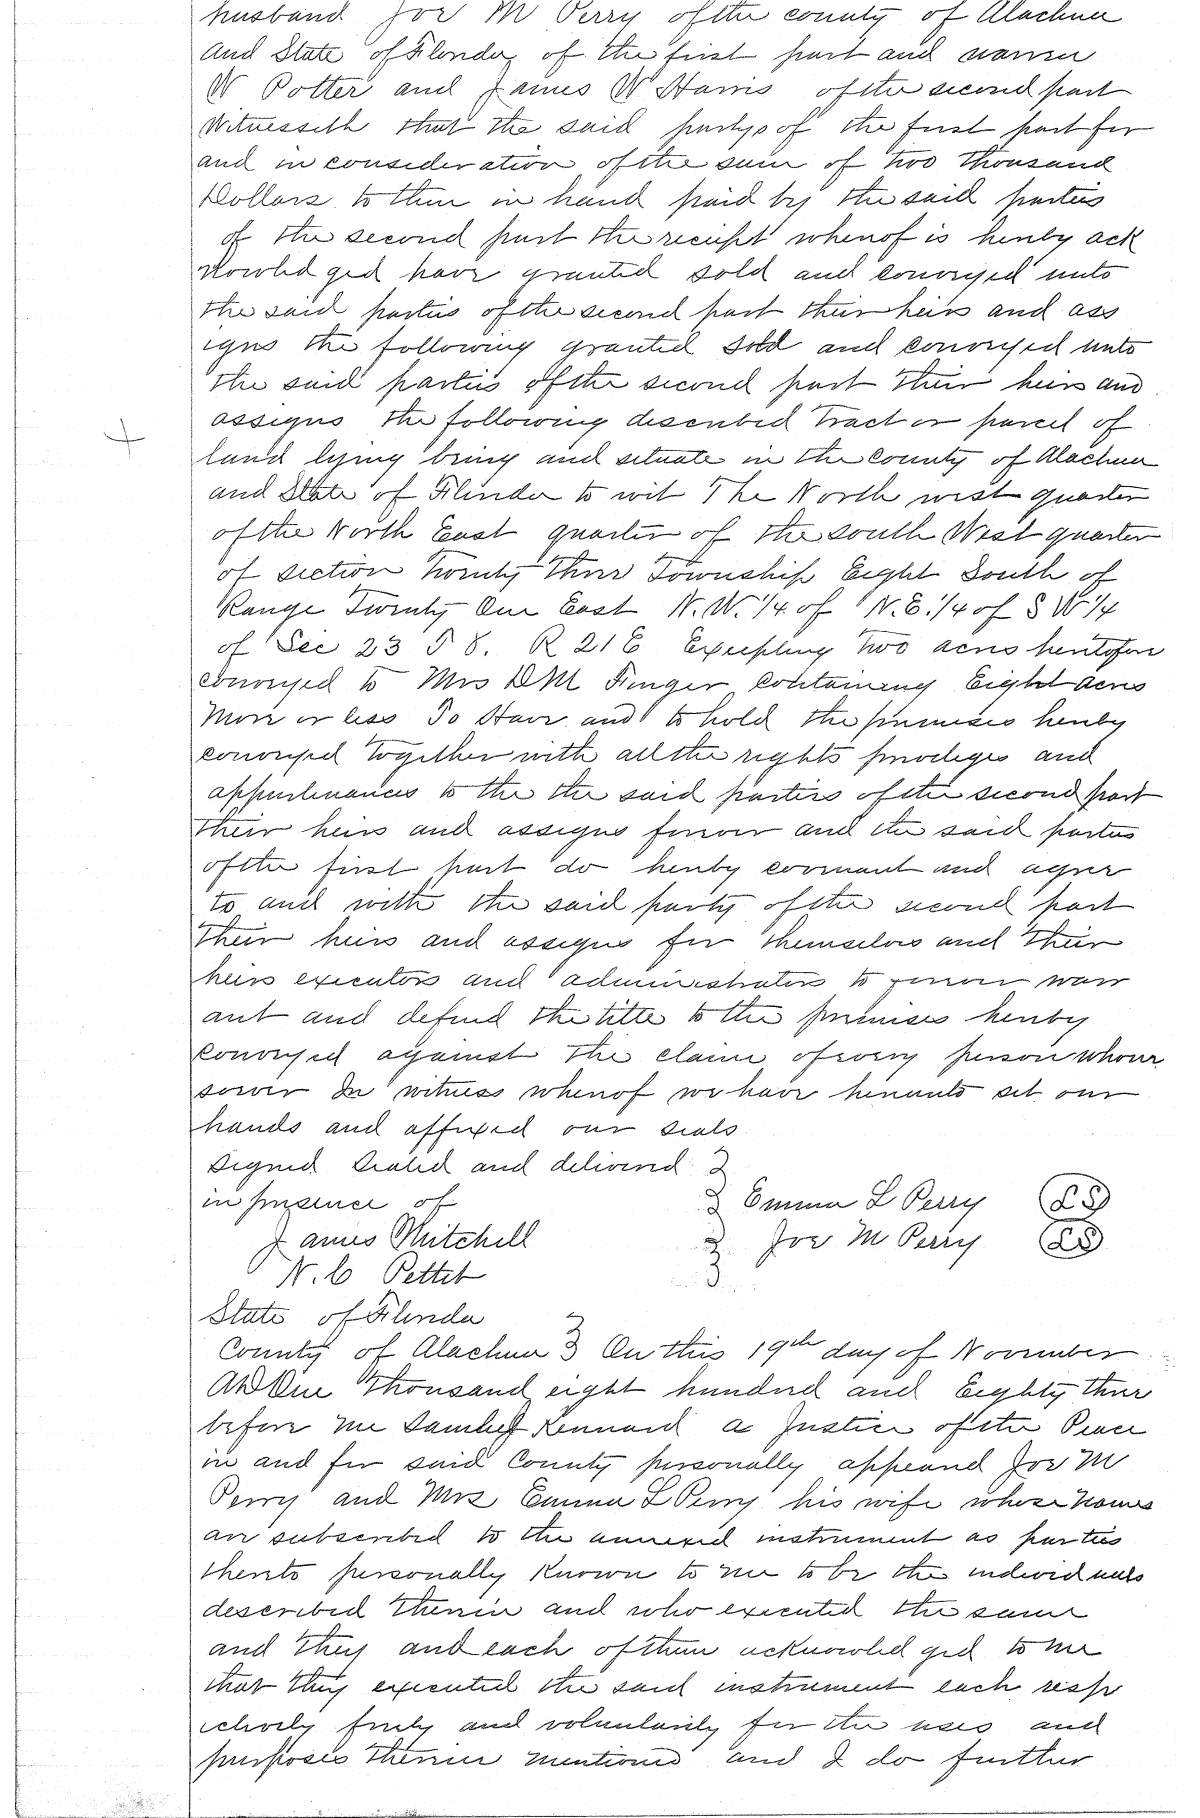 husband Joe M Perry of the county of Alachua
and State of Florida of the first part and warren
W Potter and James W Harris of the second part
Witnesseth that the said partys of the first part for
and in consideration of the sum of two thousand
Dollars to them in hand paid by the said parties
of the second part the receipt whereof is hereby ack
nowled ged have granted sold and conveyed unto
the said parties of the second part their heirs and ass
igns the following granted sold and conveyed unto
the said parties of the second part their heirs and
assigns the following described Tract or parcel of
land lying being and situate in the county of Alachua
and State of Florida to wit The North west quarter
of the North East quarter of the south West quarter
of section Twenty Three Township Eight South of
Range Twenty One East N.W. 1/4 of N.E. 1/4 of S W 1/4
of Sec 23 T 8. R 21 E Excepting Two acres heretofore
conveyed to Mrs D M Finger containing Eight acres
More or less To Have and to hold the premises hereby
conveyed together with all the rights privileges and
appurtenances to the the said parties of the second part
their heirs and assigns forever and the said parties
of the first part do hereby covenant and agree
to and with the said party of the second part
their heirs and assigns for themselves and their
heirs executors and administrators to forever warr
ant and defend the title to the premises hereby
conveyed against the claim of every person whom
soever In witness whereof we have hereunto set our
hands and affixed our seals
Signed Sealed and delivered
in presence of Emma L Perry LS
James Mitchell Joe M Perry LS
N. C Pettit
State of Florida
County of Alachua On this 19th day of November
AD One Thousand eight hundred and Eighty three
before me Kennard a Justice of the Peace
in and for said County personally appeared Joe M
Perry and Mrs Emma L Perry his wife whose names
are subscribed to the annexed instrument as parties
thereto personally Known to me to be the individuals
described therein and who executed the same
and they and each of them acknowled ged to me
that they executed the said instrument each resp
ectively freely and voluntarily for the uses and
purposes therein mentioned and I do further